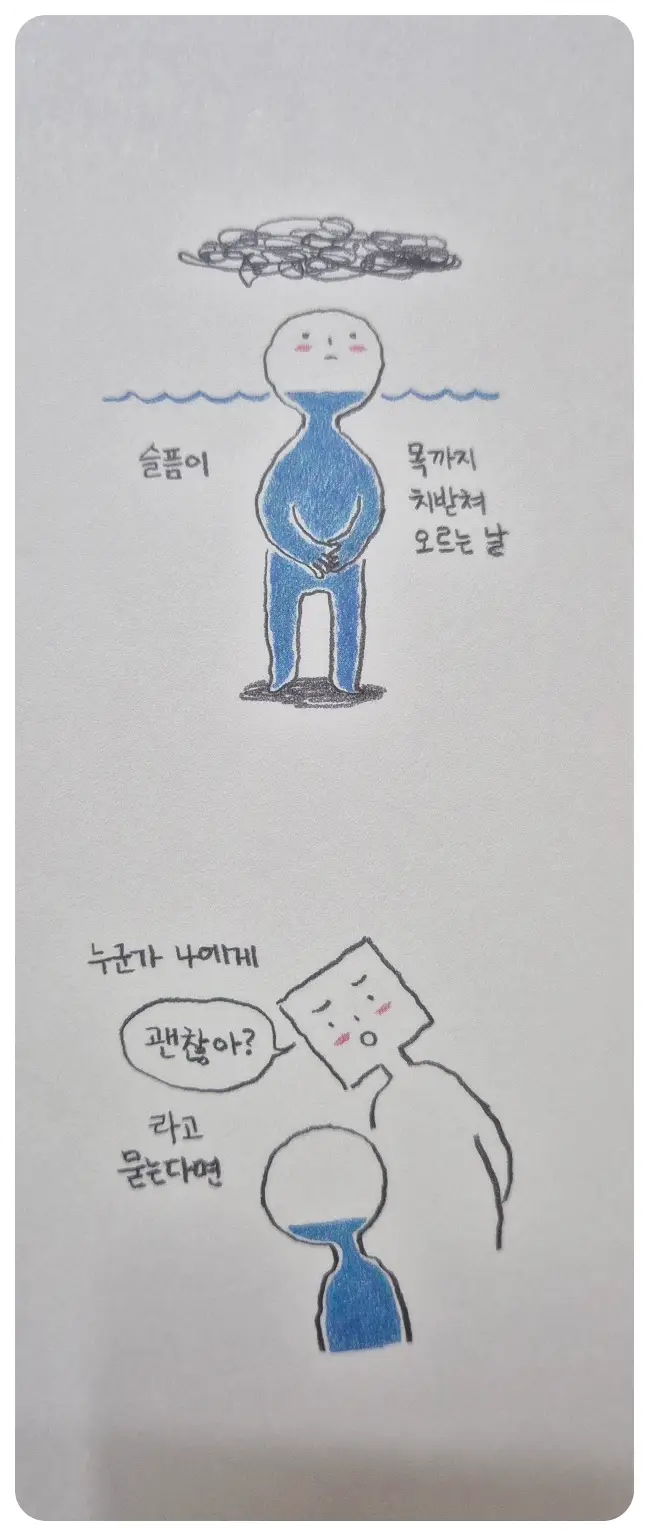 슬픔이
목까지
치받쳐
오르는 날
누군가 나에게
괜찮아?
라고
묻는다면